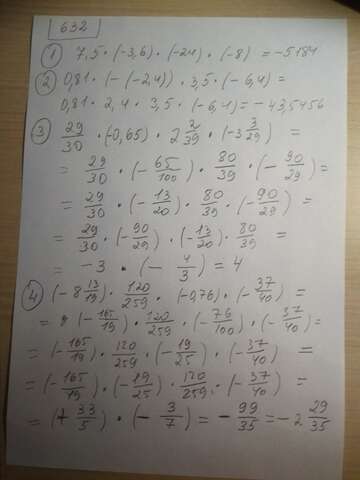 632
① 7,5 · (-3,6) · (-24) · (-8) = -5184
② 0,81 · (-(-2,4)) · 3,5 · (-6,4) =
0,81 · 2,4 · 3,5 · (-6,4) = -43,5456
③ 29/30 · (-0,65) · 2 2/39 · (-3 3/29) =
= 29/30 · (-65/100) · 80/39 · (-90/29) =
= 29/30 · (-13/20) · 80/39 · (-90/29) =
= 29/30 · (-90/29) · (-13/20) · 80/39 =
= -3 · (-4/3) = 4
④ (-8 13/19) · 120/259 · (-0,76) · (-37/40) =
= (-165/19) · 120/259 · (-76/100) · (-37/40) =
= (-165/19) · 120/259 · (-19/25) · (-37/40) =
= (-165/19) · (-19/25) · 120/259 · (-37/40) =
= (+33/5) · (-3/7) = -99/35 = -2 29/35